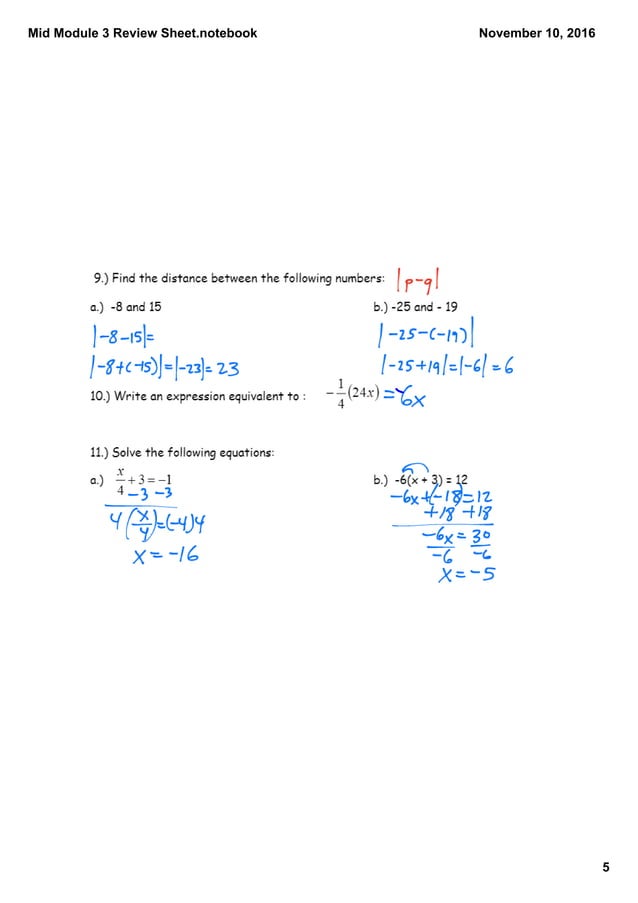 Mid Module 3 Review Sheet.notebook November 10, 2016
9.) Find the distance between the following numbers: |p-q|
a.) -8 and 15 b.) -25 and - 19
|-8-15|= |-25-(-19)|
|-8+(-15)|=|-23|=23 |-25+19|=|-6|=6
10.) Write an expression equivalent to : -1/4(24x) =-6x
11.) Solve the following equations:
a.) x/4+3=-1 b.) -6(x + 3) = 12
-3 -3 -6x+(-18)=12
+18 +18
4(x/4)=(-4)4 -6x=30
-6 -6
x=-16 x=-5
5